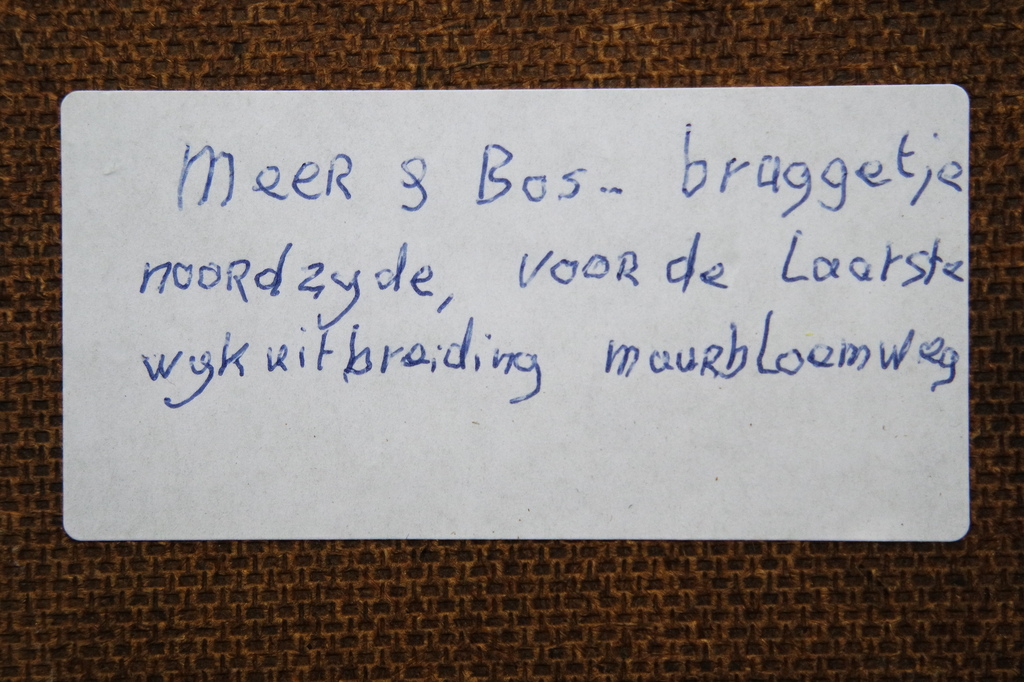 MeeR & Bos.. bruggetje
nooRdzyde, vooR de Laatste
wyk uitbreiding muuRbLoemweg